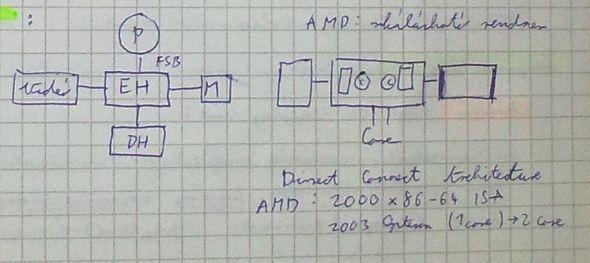 :
P
AMD: skálázható rendszer
FSB
Videó
EH
M
C C
DH
Core
Direct Connect Architecture
AMD: 2000 x86-64 ISA
2003 Opteron (1 core) → 2 core